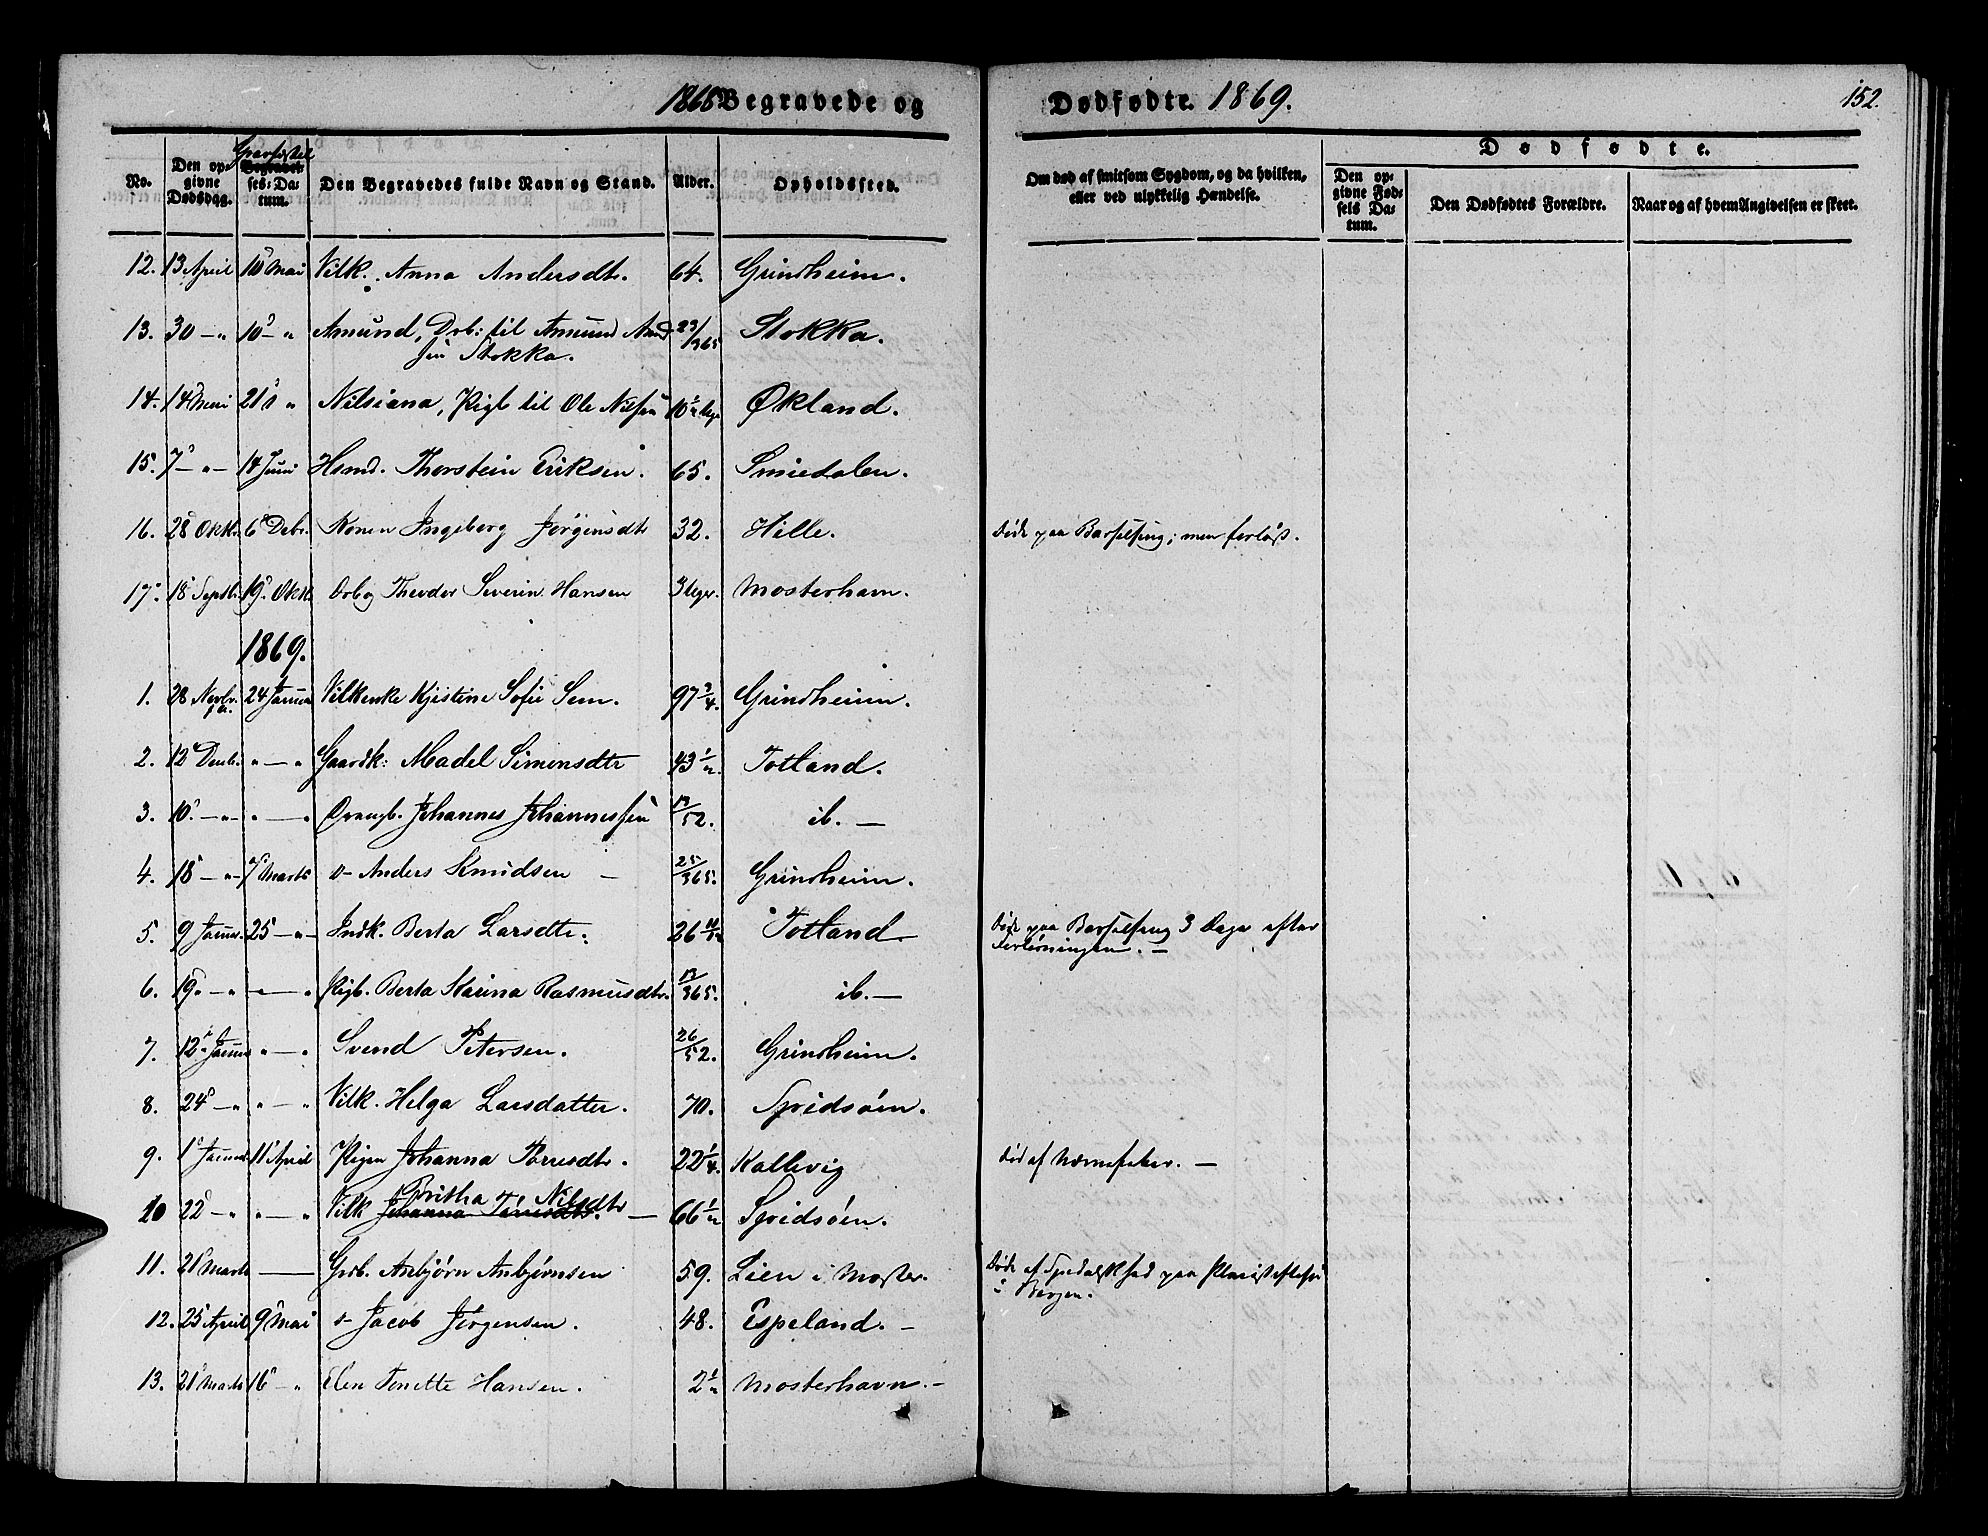 1868 Begravede og Dødfødte. 1869. 152.
No. | Den opgivne Dødsdag. | Begravelses-Datum. | Den Begravedes fulde Navn og Stand. | Alder. | Opholdssted. | Om død af smitsom Sygdom, og da hvilken, eller ved ulykkelig Hændelse. | Dødfødte. | Den opgivne Fødsels Datum. | Den Dødfødtes Forældre. | Naar og af hvem Angivelsen er skeet.
12. 13 April 10 Mai Vilk. Anna Andersdtr. 64. Grindheim.
13. 30 — " 10 — " Amund, Drb: til Amund Amund 23/365 Stokka.
sen Stokka.
14. 14 Mai 21 " Nilsiana, Pigb til Ole Nilsen 10 1/2 Uge Økland.
15. 7 — " — 14 Juni Hsmd. Thorstein Eriksen. 65. Smiedalen.
16. 28 Oktb. 6 Debr. Konen Ingeborg Jørgensdtr 32. Hille. Døde paa Barselseng; men forløst.
17. 18 Septb. 19 Oktb. Drbg Theodor Severin Hansen 3 Uger. Mosterhavn.
1869.
1. 28 Novbr. 24 Januar Vilkenke Kjistine Sofie Sem. 97 3/4. Grindheim.
2. 12 Decbr. " — " Gaardk: Madel Simensdtr 43 1/2. Totland.
3. 10. — " — " — " Drengb. Johannes Johannessen 12/52. ib. —
4. 18 — " — 7 Marts " Anders Knudsen — 25/365. Grindheim.
5. 9 Januar. 25 — " — Indk. Berta Larsdtr. 26 Totland. Døde paa Barselseng 3 Dage efter
Forløsningen. —
6. 19. — " " — " Pigb. Berta Karina Rasmusdtr. 12/365. ib. —
7. 12 Januar " — " Svend Petersen. 26/52. Grindheim.
8. 24 — " " — " Vilk. Helga Larsdatter. 70. Spidsøen.
9. 1 Januar 11 April Pigen Johanna Torresdtr. 22 1/4. Kallevig Død af Nervefeber. —
10 22 — " " — " Vilk Johanna Torresdtr. Britha Nilsdtr — 66 1/2 Spidsøen.
11. 21 Marts — Grdb. Anbjørn Anbjørnsen 59. Lien i Moster. Døde af Spedalskhed paa
i Bergen.
12. 25 April 9 Mai " Jacob Jørgensen. 48. Espeland. —
13. 21 Marts 16 — " Elen Tonette Hansen. 2 1/2 Mosterhavn. —